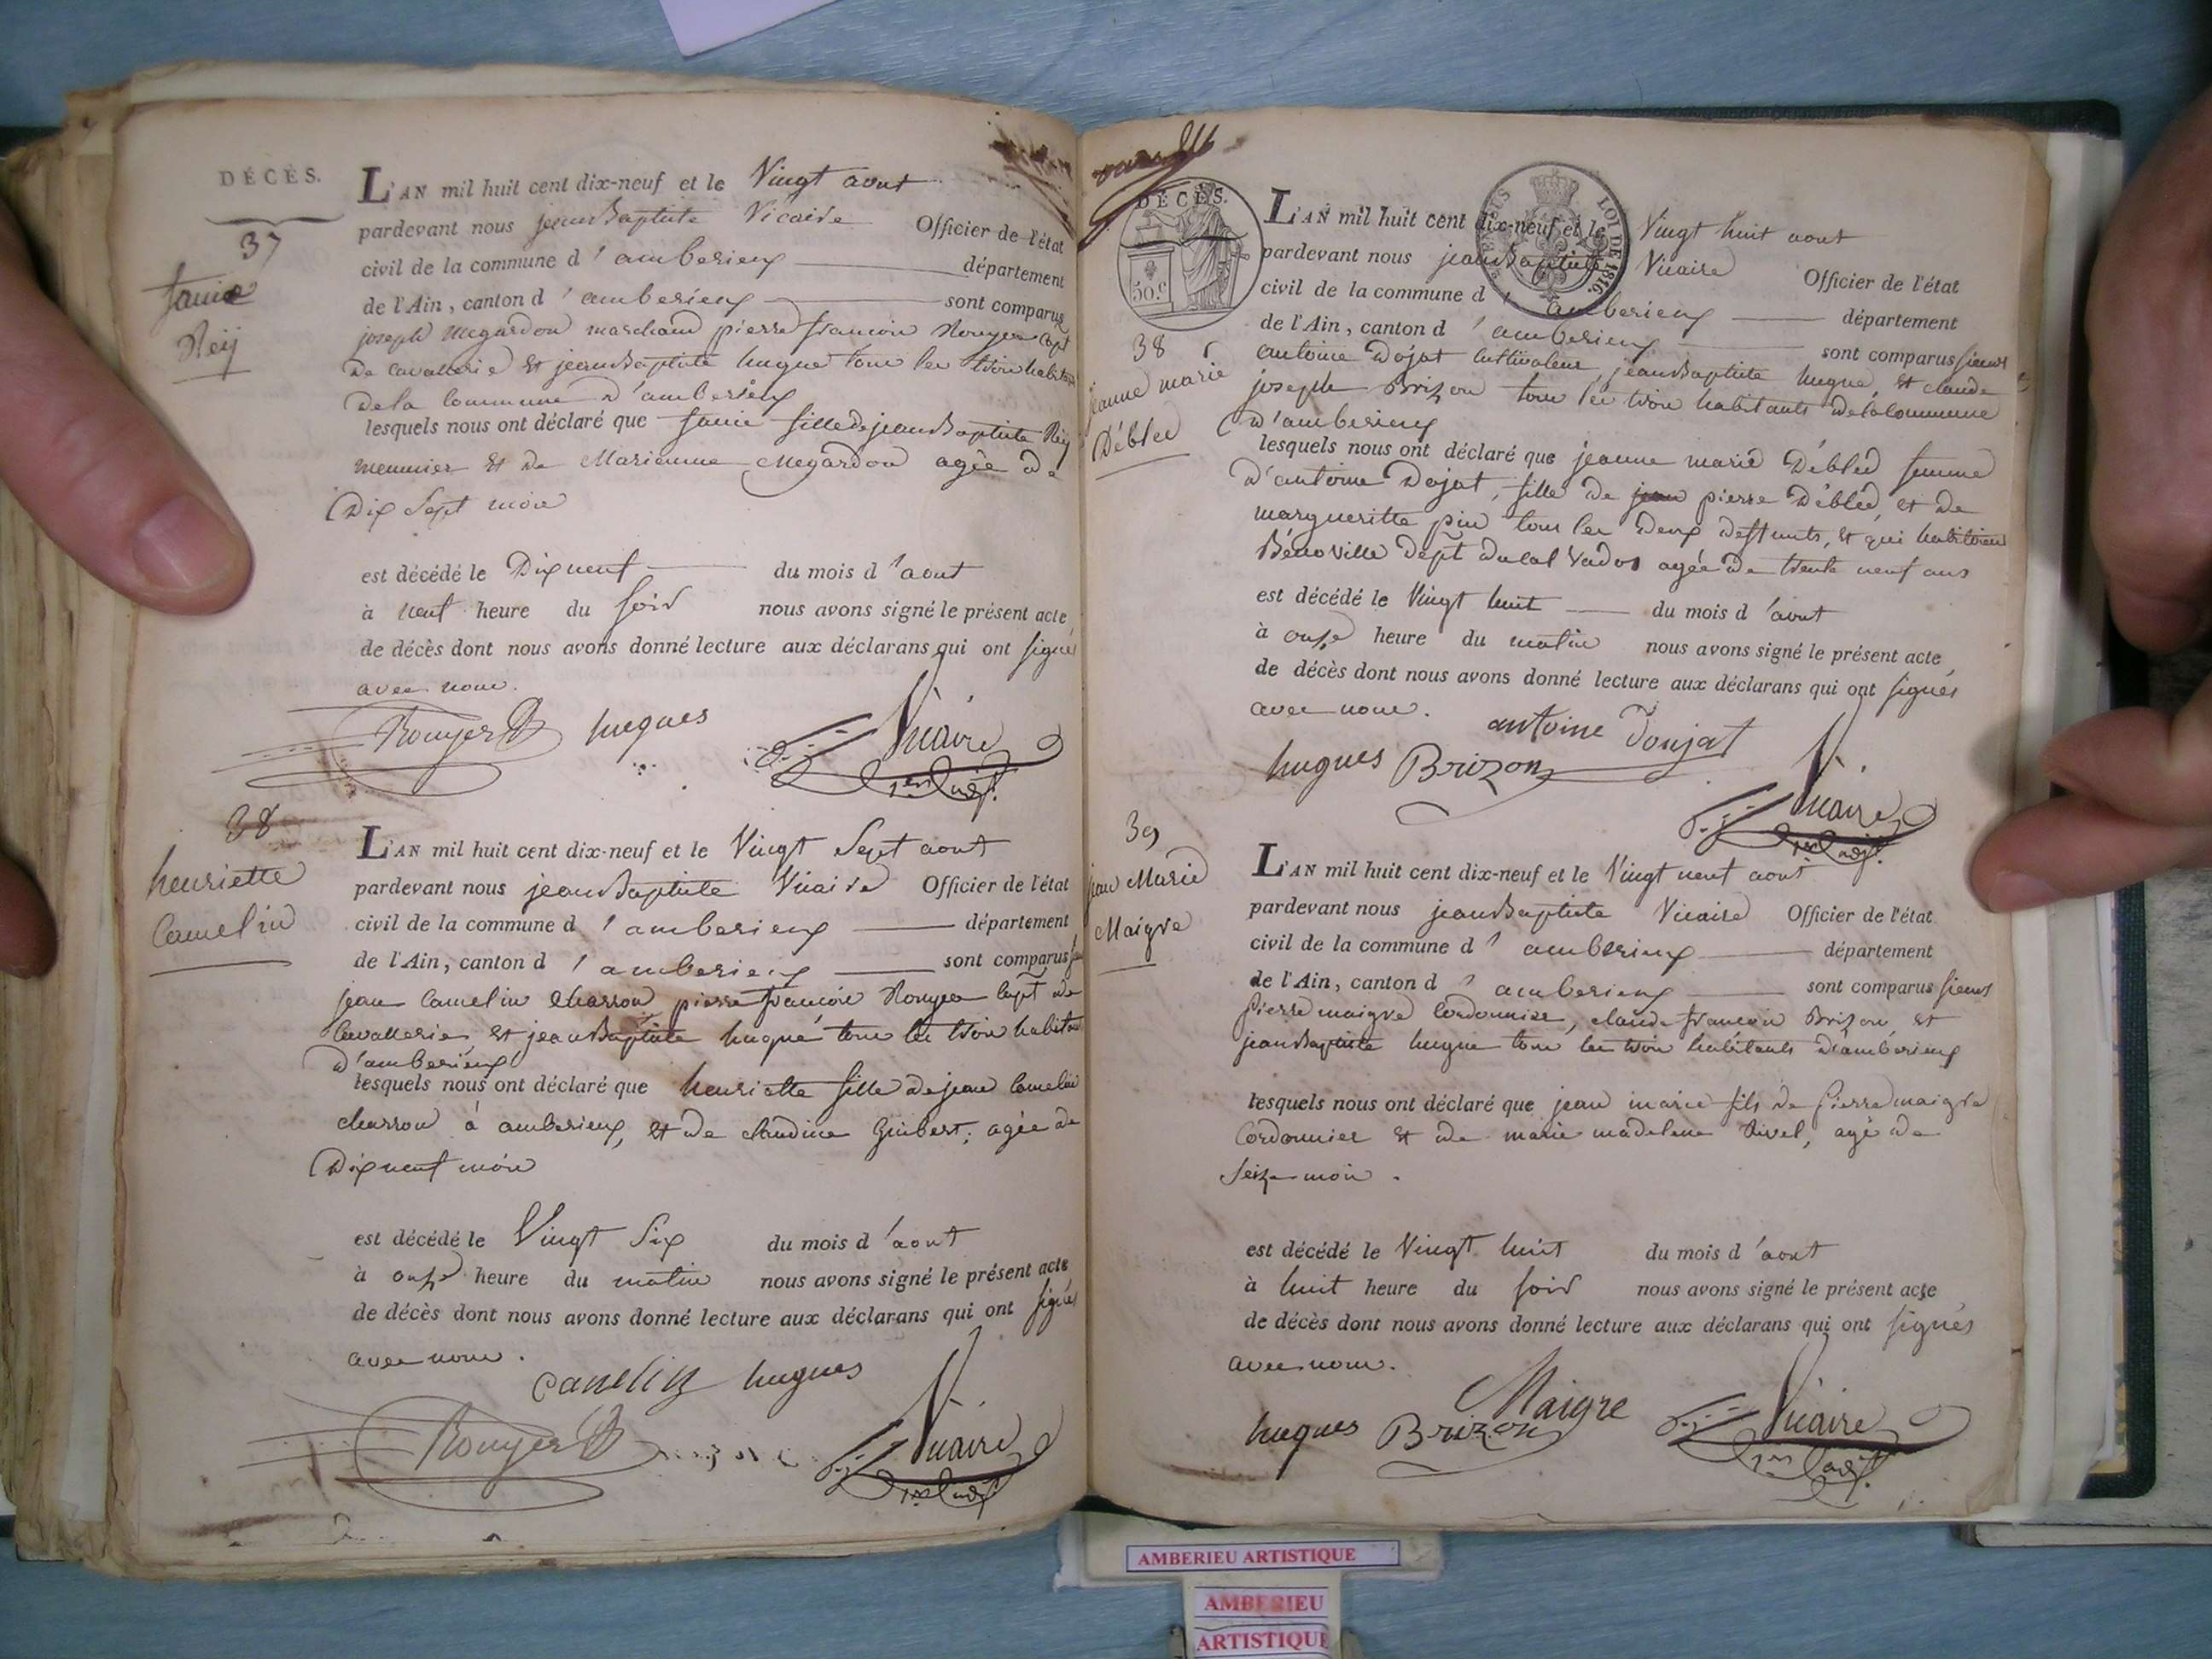 DÉCÈS.
37
fanie
Reÿ
L'AN mil huit cent dix-neuf et le Vingt aout
pardevant nous jeanBaptiste Vicaire Officier de l'état
civil de la commune d'amberieux département
de l'Ain, canton d'amberieux sont comparus
joseph Megardon marchand pierre francois Rouyer Capt
De Cavallerie Et jeanBaptiste hugue tous les trois habitans
De la Commune D'amberieux
lesquels nous ont déclaré que fanie fille de jeanBaptiste Reÿ
meunier Et De Marianne Megardon agée de
Dix Sept mois
est décédé le Dix neuf du mois d'aout
à neuf heure du soir nous avons signé le présent acte
de décès dont nous avons donné lecture aux déclarans qui ont signés
avec nous.
Rouyer hugues Vicaire
1er adj.
38
henriette
Camelin
L'AN mil huit cent dix-neuf et le Vingt Sept aout
pardevant nous jeanBaptiste Vicaire Officier de l'état
civil de la commune d'amberieux département
de l'Ain, canton d'amberieux sont comparus
jean Camelin charron pierre francois Rouyer Capt de
Cavallerie Et jeanBaptiste hugue tous les trois habitans
D'amberieux
lesquels nous ont déclaré que henriette fille de jean Camelin
charron à amberieux, Et de claudine Guibert, agée de
Dix neuf mois
est décédé le Vingt Six du mois d'aout
à onze heure du matin nous avons signé le présent acte
de décès dont nous avons donné lecture aux déclarans qui ont signés
avec nous.
Camelin hugues
Rouyer Vicaire
1er adj.
DÉCÈS.
50.c
LOI DE 1816.
38
jeanne marie
Débled
L'AN mil huit cent dix-neuf et le Vingt huit aout
pardevant nous jeanBaptiste Vicaire Officier de l'état
civil de la commune d'amberieux département
de l'Ain, canton d'amberieux sont comparus sieurs
antoine Dojat Cultivateur, jeanBaptiste hugue, Et claude
joseph Brizon tous les trois habitants de la Commune
D'amberieux
lesquels nous ont déclaré que jeanne marie Débled femme
D'antoine Dojat, fille de jean pierre Débled, et de
margueritte pin tous les deux deffunts, et qui habitoient
Bénoville Dept du Cal Vados agée de trente neuf ans
est décédé le Vingt huit du mois d'aout
à onze heure du matin nous avons signé le présent acte
de décès dont nous avons donné lecture aux déclarans qui ont signés
avec nous.
antoine Doujat
hugues Brizon
Vicaire
1er adj.
39
jean Marie
Maigre
L'AN mil huit cent dix-neuf et le Vingt neuf aout
pardevant nous jeanBaptiste Vicaire Officier de l'état
civil de la commune d'amberieux département
de l'Ain, canton d'amberieux sont comparus sieurs
Pierre maigre Cordonnier, claude francois Brizon, Et
jeanBaptiste hugue tous les trois habitants d'amberieux
lesquels nous ont déclaré que jean marie fils de Pierre maigre
Cordonnier Et de marie madelene Rivel, agé de
Seize mois.
est décédé le Vingt huit du mois d'aout
à huit heure du soir nous avons signé le présent acte
de décès dont nous avons donné lecture aux déclarans qui ont signés
avec nous.
Maigre
hugues Brizon Vicaire
1er adj.
AMBERIEU ARTISTIQUE
AMBERIEU
ARTISTIQUE